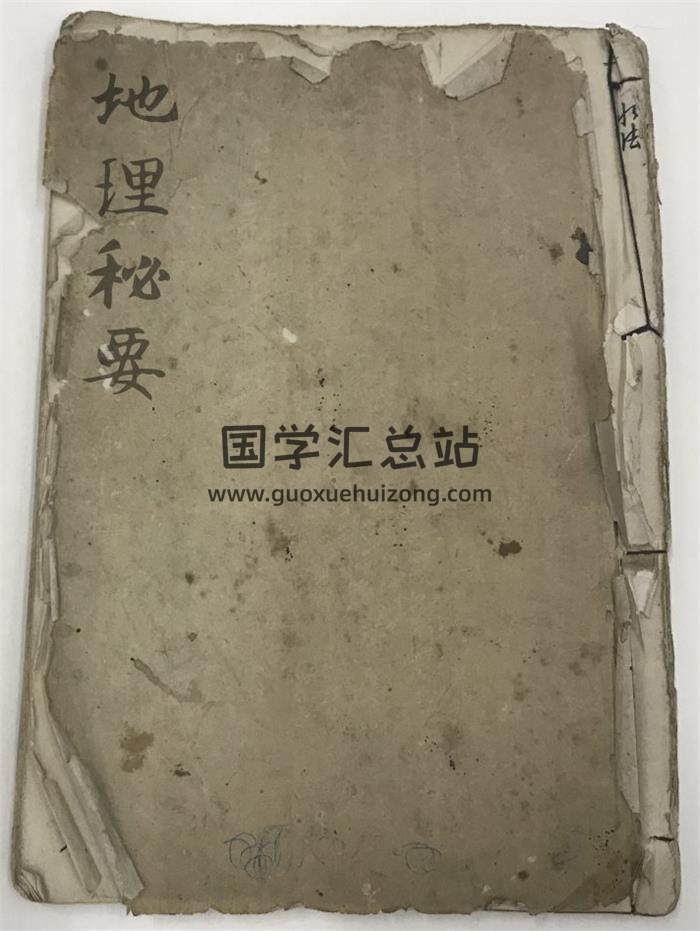 地理秘要
国学汇总站
www.guoxuehuizong.com